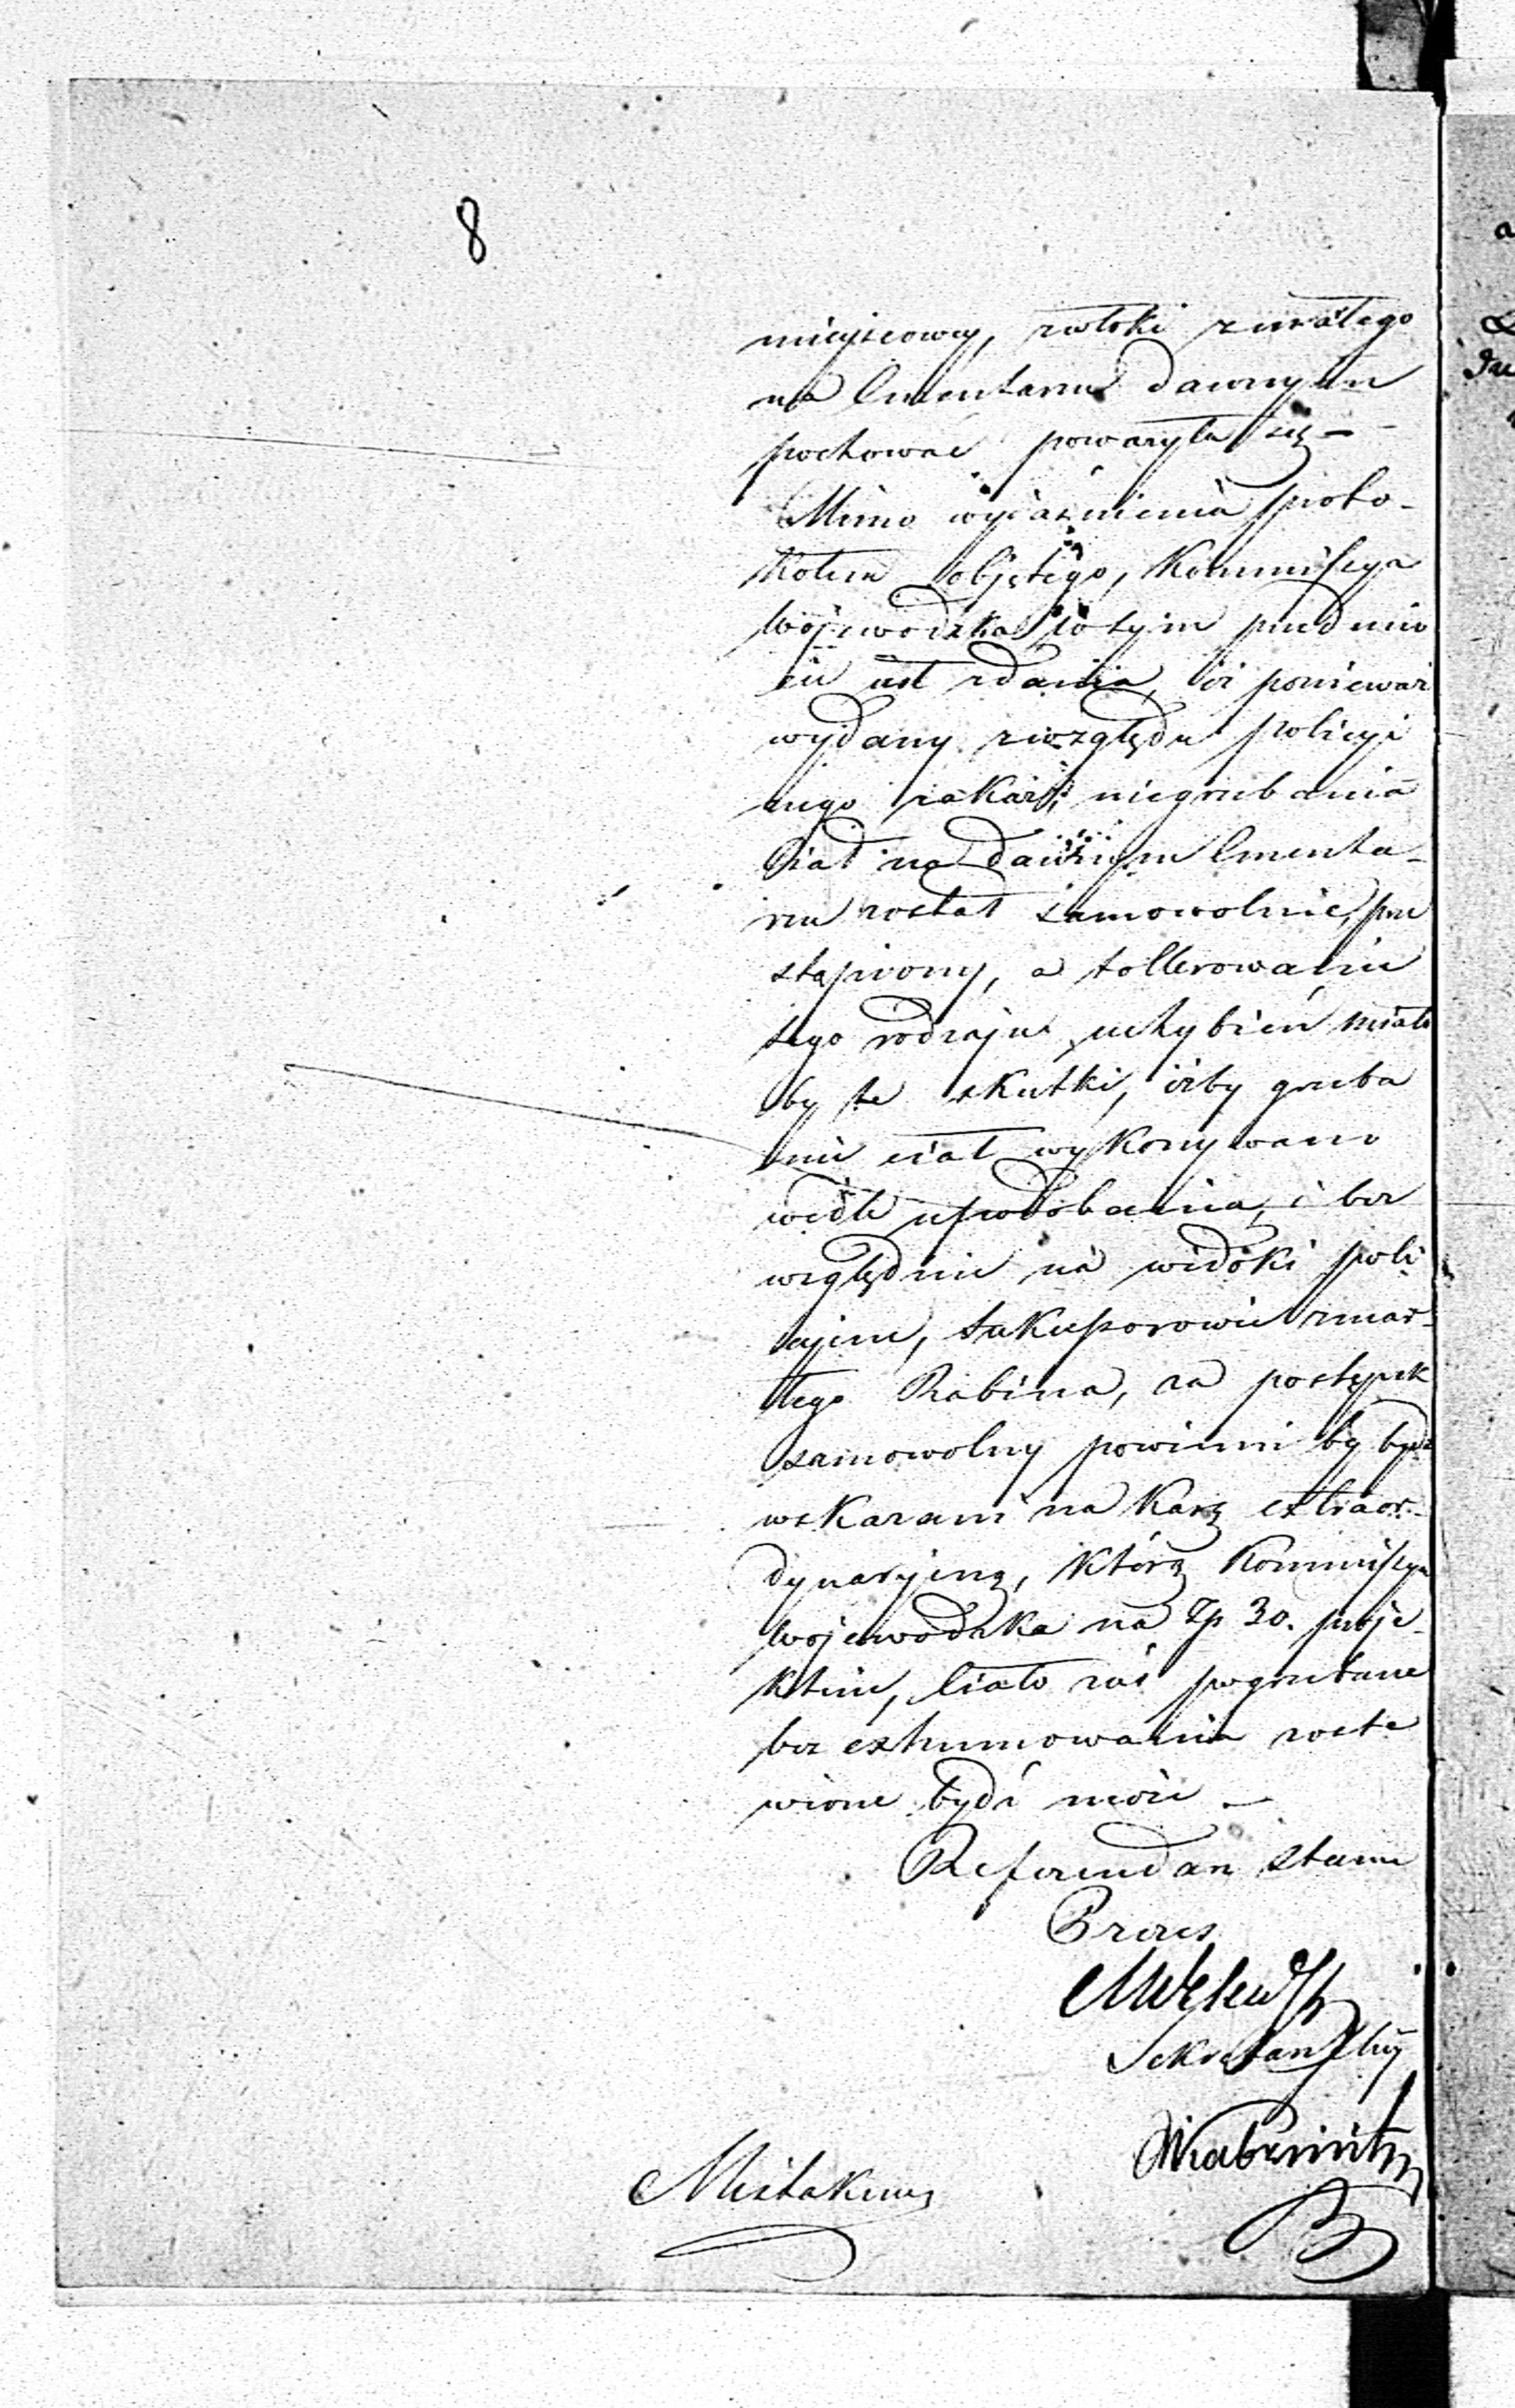 8
mieyscowey, zwłoki zmarłego
na Cmentarzu dawnym
pochować poważyła się —
Mimo wyiaśnienia proto-
kołem objętego, Kommissya
Wojewodzka po tym przedmio
cie iest zdania, iż ponieważ
wydany zwzględu policyi
nego zakaz niegrzebania
Ciał na dawnym Cmenta-
rzu został samowolnie, prze
stąpiony, a tollerowanie
tego rodzaju uchybień miało
by te skutki, iżby grzeba
nie ciał wykonywano
wedle upodobania, i bez
względnie na widoki poli
cyjne, takeporowie zmar-
łego Rabina, za postępek
samowolny powinni by bydź
wskazani na Karę extraor-
dynaryjną, którą Kommissya
Wojewodzka na Zp 30. proje-
ktuie, Ciało zaś pogrzebane
bez exhumowania zosta
wione bydź może —
Referendarz Stanu
Prezes
Sekretarz Jlny